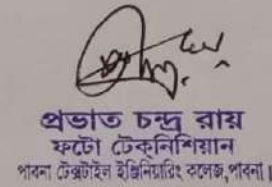 প্রভাত চন্দ্র রায়
ফটো টেকনিশিয়ান
পাবনা টেক্সটাইল ইঞ্জিনিয়ারিং কলেজ,পাবনা।